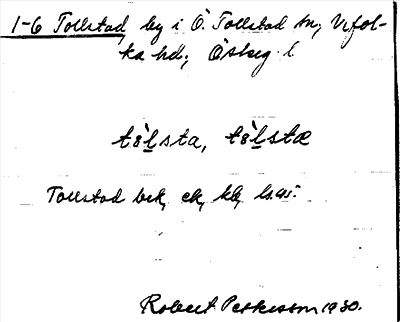 1-6 Tollstad, by i Ö. Tollstad sn, Vifol-
ka hd, Österg. l.
tòlsta, tòlstæ
Tollstad bek, ek, kb, ls.
Robert Pettersson 1930.